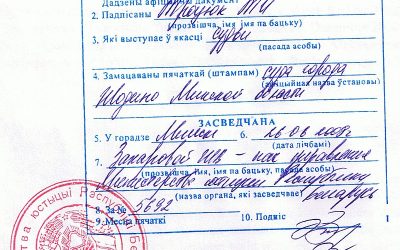 Дадзены афіцыйны дакумент
2. Падпісаны
(прозвішча, імя, імя па бацьку)
3. Які выступае ў якасці судьи
(пасада асобы)
4. Замацаваны пячаткай (штампам) суда города
(афіцыйная назва ўстановы)
Жодино Минской области
ЗАСВЕДЧАНА
5. У горадзе Минск 6.
(дата лічбамі)
7. Захаровой
(прозвішча, імя, імя па бацьку, пасада асобы)
Министерства юстиции Республики
(назва органа, які засведчвае) Беларусь
8. За № 5692
9. Месца пячаткі 10. Подпіс
ва юстыцыі Рэспуб